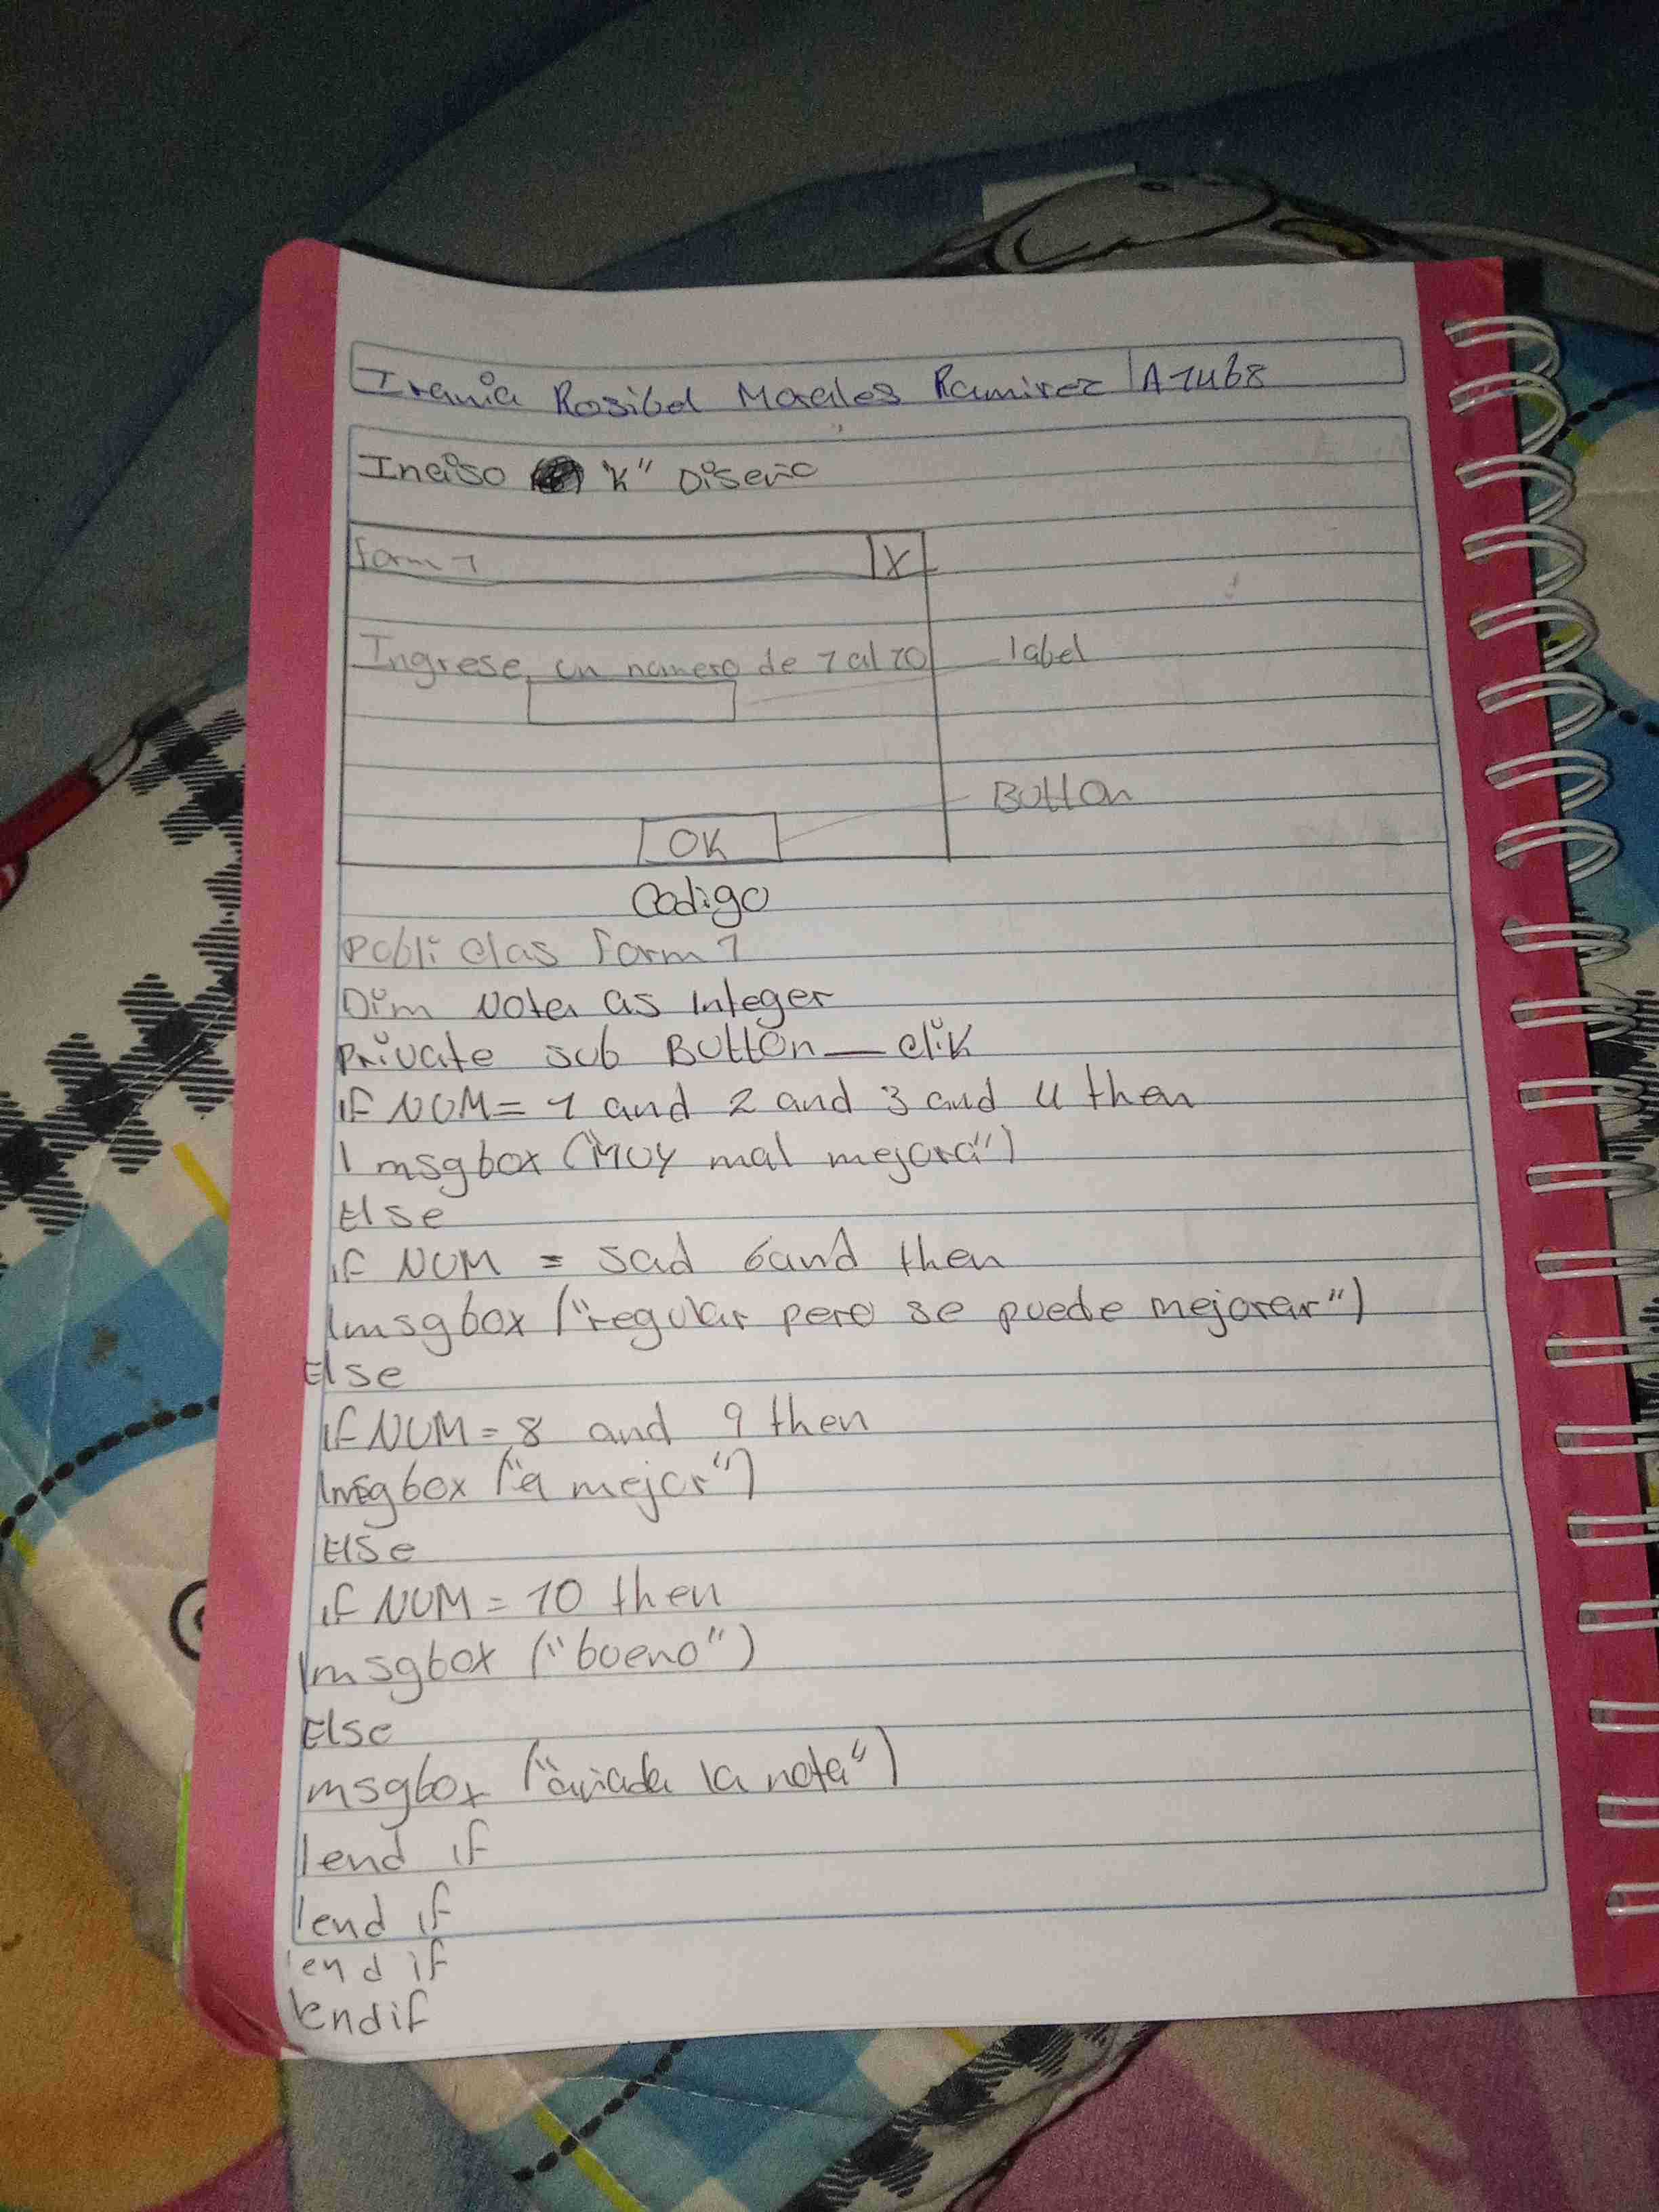 Irania Rosibel Morales Ramirez A1468
Inciso "K" Diseño
form 1 X
Ingrese un numero de 1 al 10 label
Button
OK
Codigo
Publi clas form 1
Dim Nota as Integer
Private sub Button_clik
if NUM = 1 and 2 and 3 and 4 then
msgbox ("Muy mal mejora")
Else
if NUM = 5ad 6and then
msgbox ("regular pero se puede mejorar")
Else
if NUM = 8 and 9 then
msgbox ("a mejor")
Else
if NUM = 10 then
msgbox ("bueno")
Else
msgbox (" la nota")
end if
end if
end if
endif